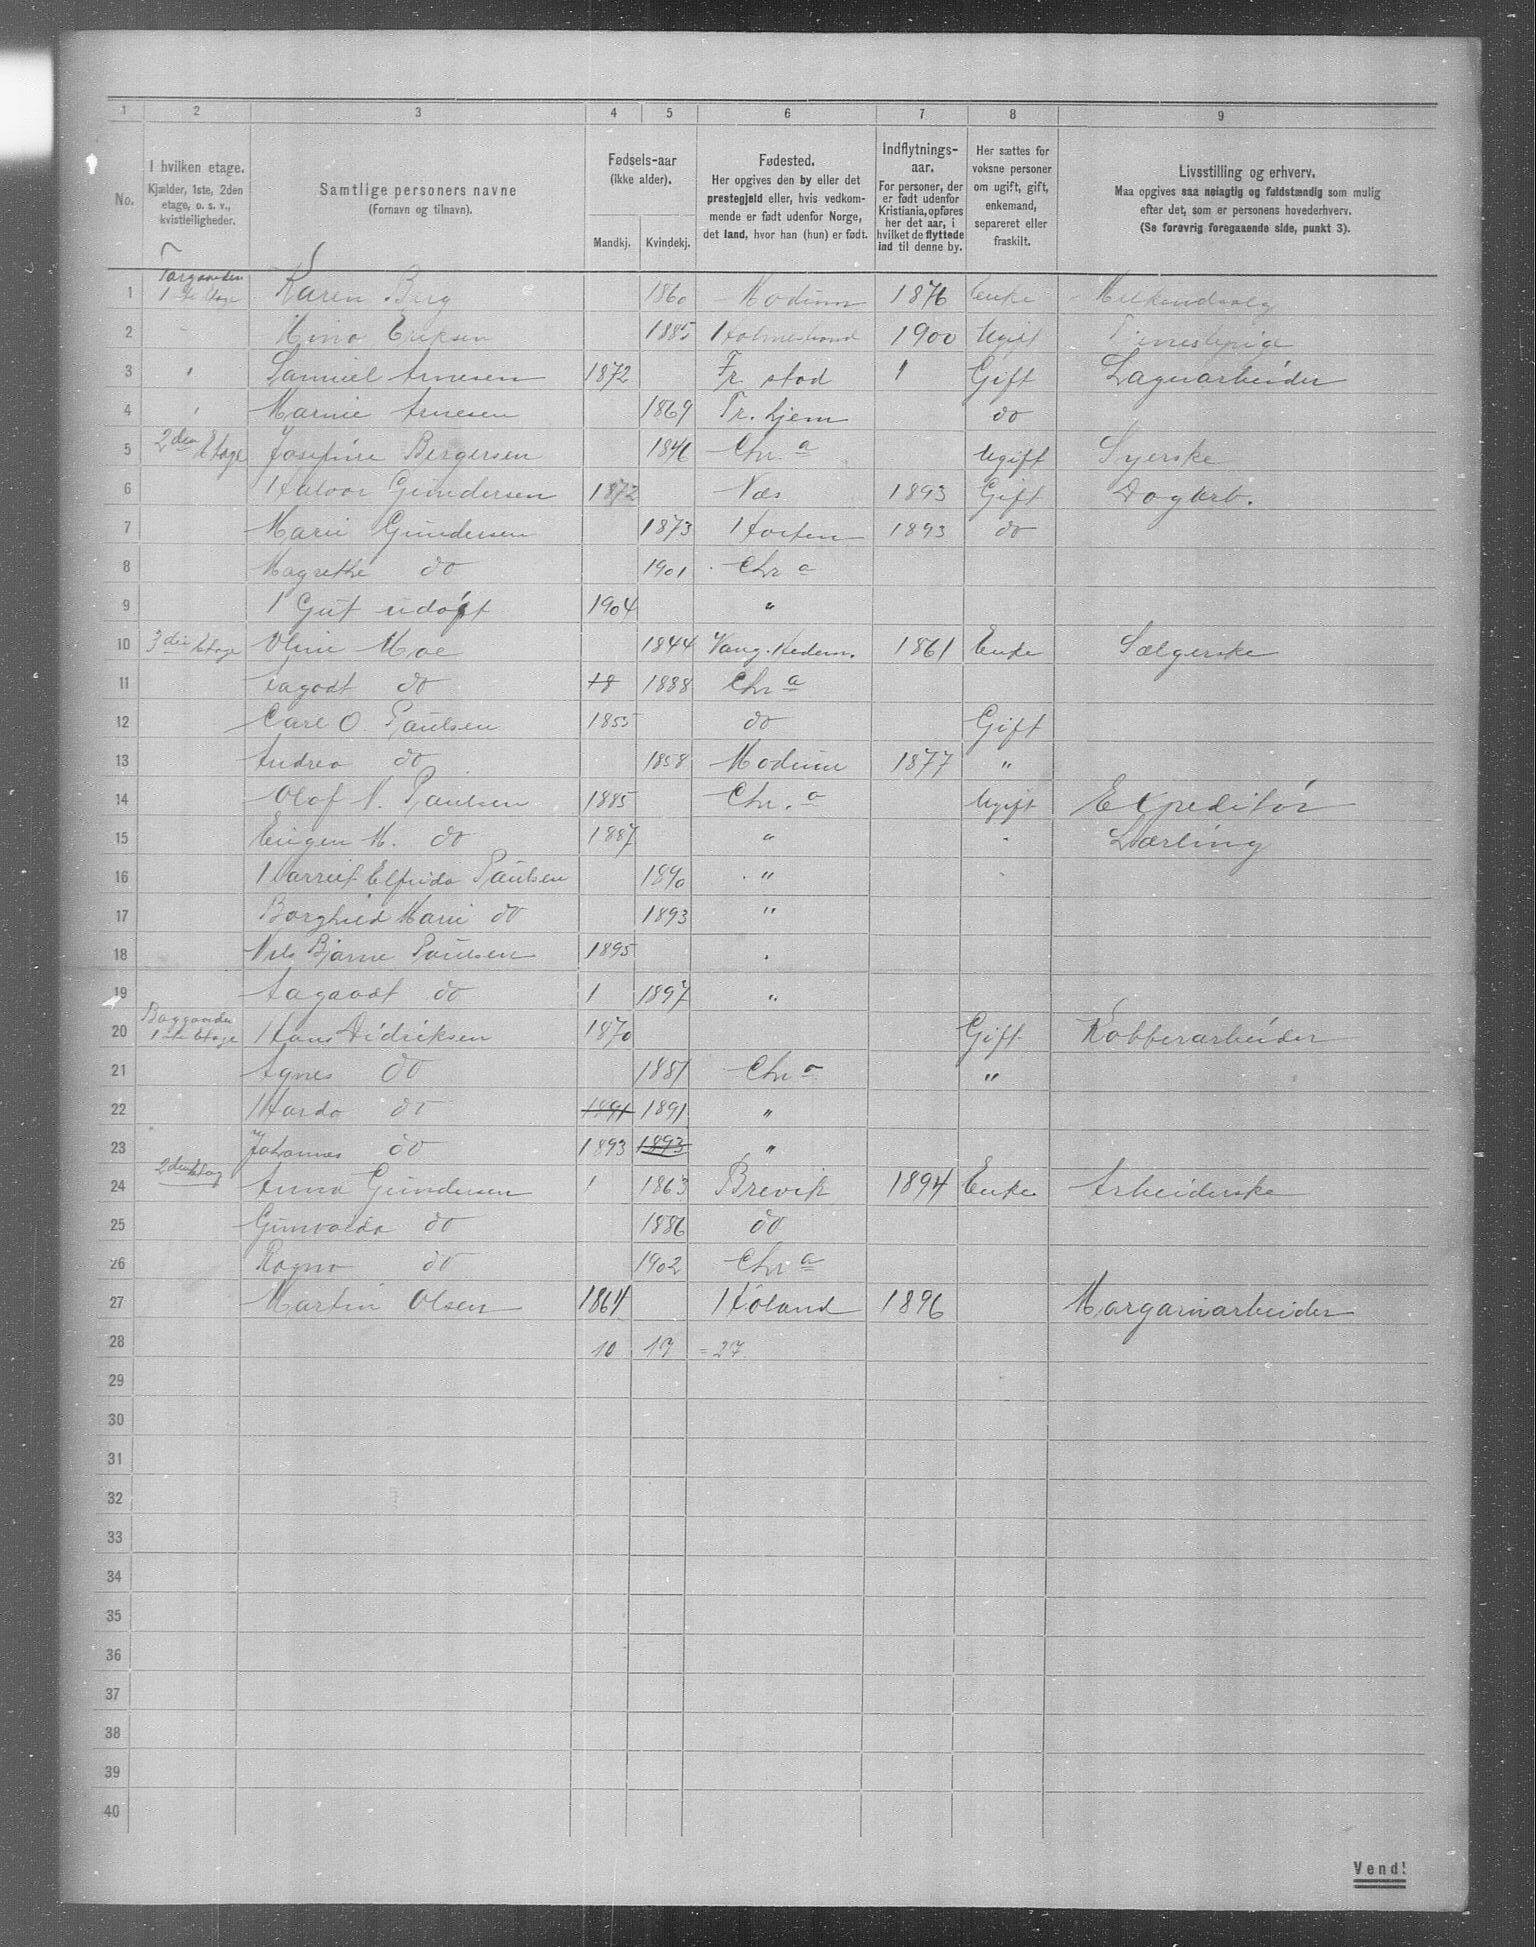 1 2 3 4 5 6 7 8 9
No.
I hvilken etage.
Kjælder, 1ste, 2den
etage, o. s. v.,
kvistleiligheder.
Samtlige personers navne
(Fornavn og tilnavn).
Fødsels-aar
(ikke alder).
Mandkj. Kvindekj.
Fødested.
Her opgives den by eller det
prestegjeld eller, hvis vedkom-
mende er født udenfor Norge,
det land, hvor han (hun) er født.
Indflytnings-
aar.
For personer, der
er født udenfor
Kristiania, opføres
her det aar, i
hvilket de flyttede
ind til denne by.
Her sættes for
voksne personer
om ugift, gift,
enkemand,
separeret eller
fraskilt.
Livsstilling og erhverv.
Maa opgives saa nøiagtig og fuldstændig som mulig
efter det, som er personens hovederhverv.
(Se forøvrig foregaaende side, punkt 3).
Forgaarden
1 1ste Etage Karen Berg 1860 Modum 1876 Enke Melkeudsalg
2 Mina Eriksen 1885 Holmestrand 1900 Ugift Tjenestepige
3 Samuel Arnesen 1872 Fr. stad Gift Lagerarbeider
4 Marnie Arnesen 1869 Tr. hjem do
5 2den Etage Josefine Bergersen 1846 Chr.a Ugift Syerske
6 Halvor Gundersen 1872 Næs 1893 Gift Dagarb.
7 Marie Gundersen 1873 Horten 1893 do
8 Magrethe do 1901 Chra
9 1 Gut udøbt 1904 "
10 3die Etage Oline Moe 1844 Vang. Hedem. 1861 Enke Sælgerske
11 Aagodt do 18 1888 Chra
12 Carl O. Paulsen 1855 do Gift
13 Andrea do 1858 Modum 1877 "
14 Olof N. Paulsen 1885 Chr.a Ugift Expeditør
15 Eugen M. do 1887 " " Lærling
16 Harriet Elfrida Paulsen 1890 "
17 Borghild Marie do 1893 "
18 Nils Bjarne Paulsen 1895
19 Aagaadt do 1897 "
Baggaarden
20 1ste Etage Hans Didriksen 1870 Gift Kobberarbeider
21 Agnes do 1851 Chra "
22 Harda do 1891 1891 "
23 Johannes do 1893 1893 "
24 2den Etag Anna Gundersen 1863 Brevik 1894 Enke Arbeiderske
25 Gunvalda do 1886 do
26 Ragna do 1902 Chra
27 Martin Olsen 1864 Høland 1896 Margarinarbeider
28 10 17 = 27.
29
30
31
32
33
34
35
36
37
38
39
40
Vend!